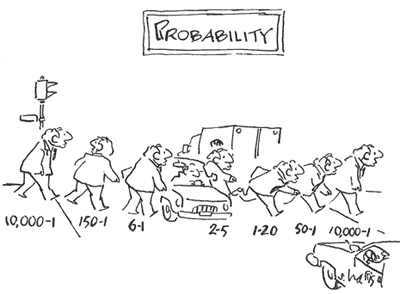 PROBABILITY
10,000-1 150-1 6-1 2-5 1-20 50-1 10,000-1